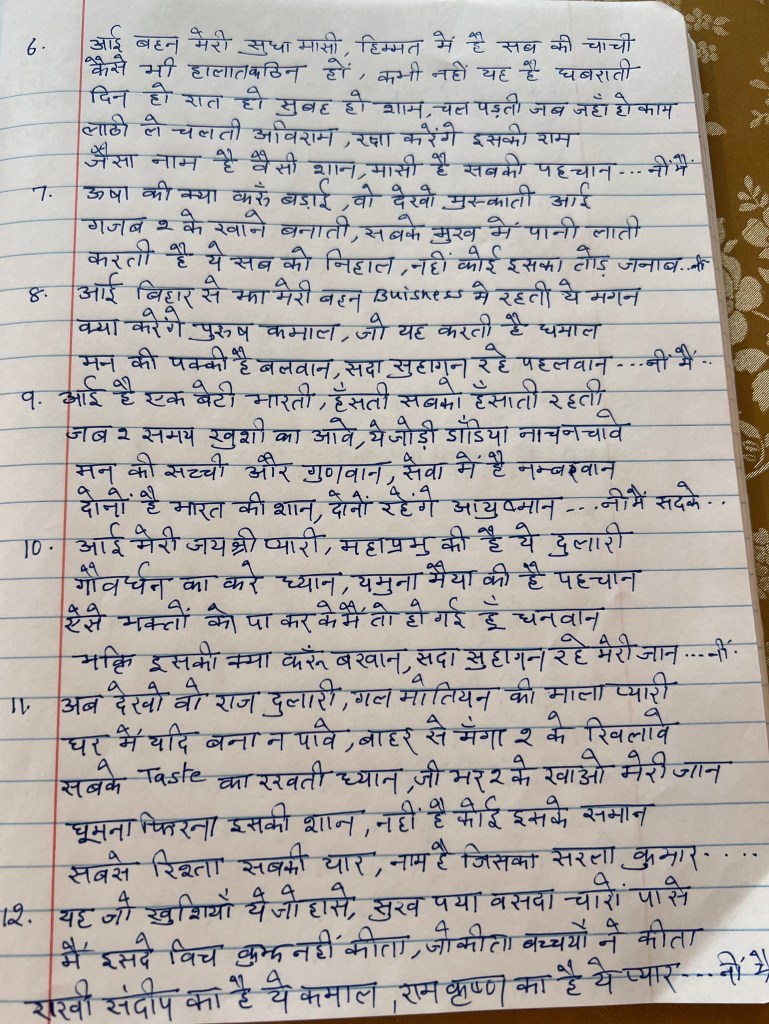 6. आई बहन मेरी सुधा मासी, हिम्मत में है सब की चाची
कैसे भी हालात कठिन हों, कभी नहीं यह है घबराती
दिन हो रात हो सुबह हो शाम, चल पड़ती जब जहाँ हो काम
लाठी ले चलती अविराम, रक्षा करेंगे इसकी राम
जैसा नाम है वैसी शान, मासी है सबकी पहचान ... नीं मैं
7. ऊषा की क्या करुँ बड़ाई, वो देखो मुस्काती आई
गजब २ के खाने बनाती, सबके मुख में पानी लाती
करती है ये सब को निहाल, नहीं कोई इसका तोड़ जनाब.. नीं
8. आई बिहार से भा मेरी बहन Buisness मे रहती ये मगन
क्या करेंगे पुरुष कमाल, जो यह करती है धमाल
मन की पक्की है बलवान, सदा सुहागन रहे पहलवान ... नीं मैं..
9. आई है एक बेटी भारती, हँसती सबको हँसाती रहती
जब २ समय खुशी का आवे, ये जोड़ी डाँडिया नाच नचावे
मन की सच्ची और गुणवान, सेवा में है नम्बर वान
दोनों है भारत की शान, दोनों रहेंगे आयुष्मान ... नीं मैं सदके..
10. आई मेरी जयश्री प्यारी, महाप्रभु की है ये दुलारी
गौवर्धन का करे ध्यान, यमुना मैया की है पहचान
ऐसे भक्तों को पा कर के मैं तो हो गई हूँ धनवान
भक्ति इसकी क्या करुँ बखान, सदा सुहागन रहे मेरी जान ... नीं.
11. अब देखो वो राज दुलारी, गल मोतियन की माला प्यारी
घर में यदि बना न पावे, बाहर से मँगा २ के खिलावे
सबके Taste का रखती ध्यान, जी भर २ के खाओ मेरी जान
घूमना फिरना इसकी शान, नहीं है कोई इसके समान
सबसे रिश्ता सबकी यार, नाम है जिसका सरला कुमार....
12. यह जो खुशियाँ ये जो हासे, सुख पया वसदा चारों पासे
मैं इसदे विच कुछ नहीं कीता, जो कीता बच्चयाँ ने कीता
राखी संदीप का है ये कमाल, राम कृष्ण का है ये प्यार ... नीं मैं